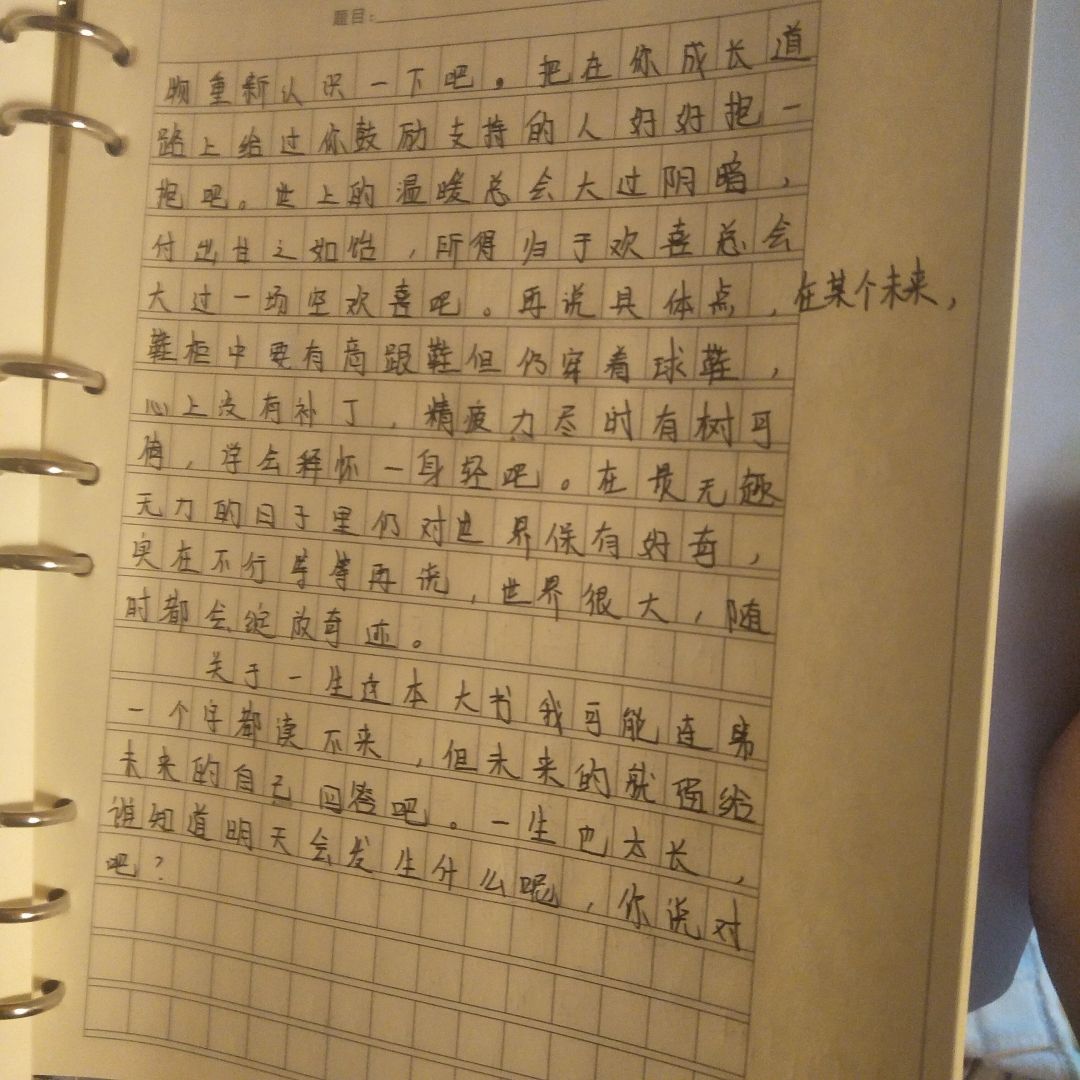 题目:
物重新认识一下吧。把在你成长道
路上给过你鼓励支持的人好好抱一
抱吧。世上的温暖总会大过阴暗，
付出甘之如饴，所得归于欢喜总会
大过一场空欢喜吧。再说具体点，在某个未来，
鞋柜中要有高跟鞋但仍穿着球鞋，
心上没有补丁，精疲力尽时有树可
倚，学会释怀一身轻吧。在最无趣
无力的日子里仍对世界保有好奇，
实在不行等等再说，世界很大，随
时都会绽放奇迹。
关于一生这本大书我可能连第
一个字都读不来，但未来的就留给
未来的自己回答吧。一生也太长，
谁知道明天会发生什么呢，你说对
吧？